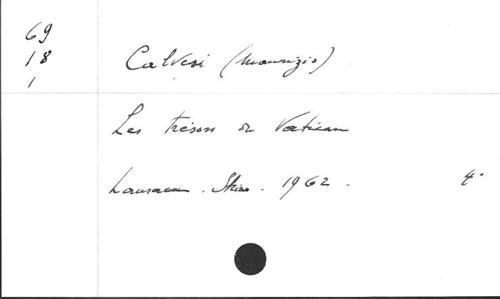 69
18
1
Calvesi (Maurizio)
Les trésors du Vatican
Lausanne. Skira. 1962. 4°